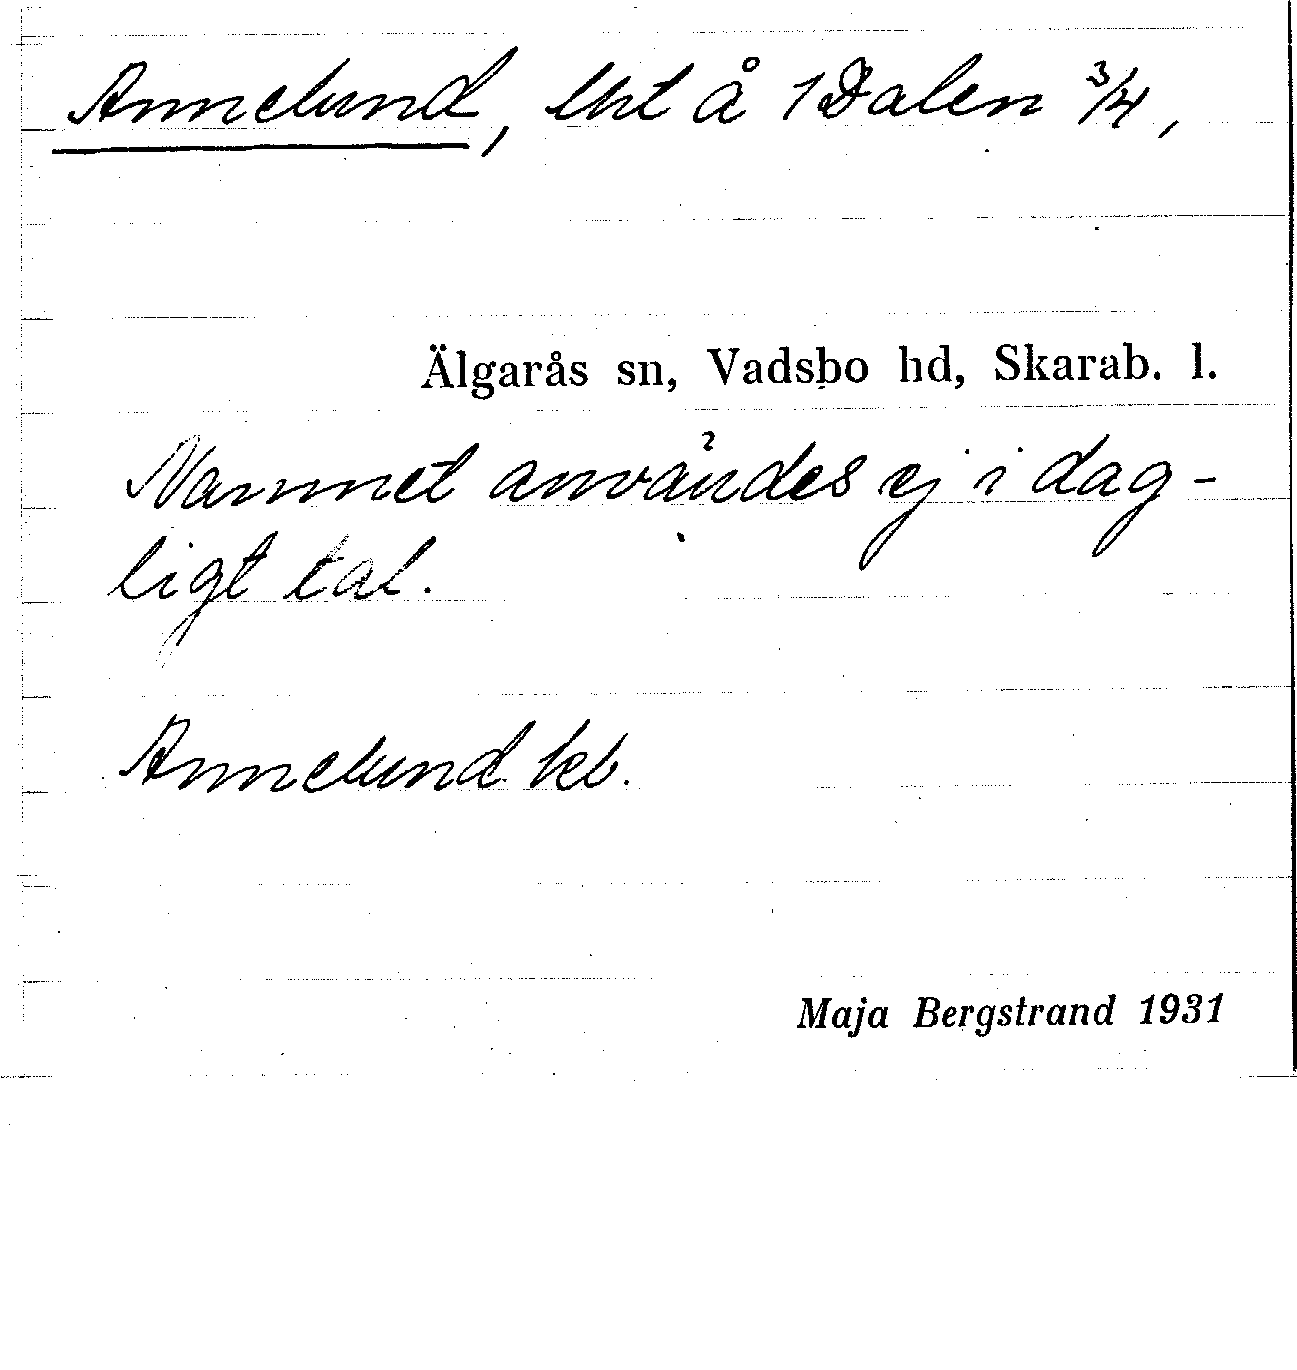 Annelund, lht å 1 Dalen 3/4,
Älgarås sn, Vadsbo hd, Skarab. l.
Namnet användes ej i dag-
ligt tal.
Annelund kb.
Maja Bergstrand 1931